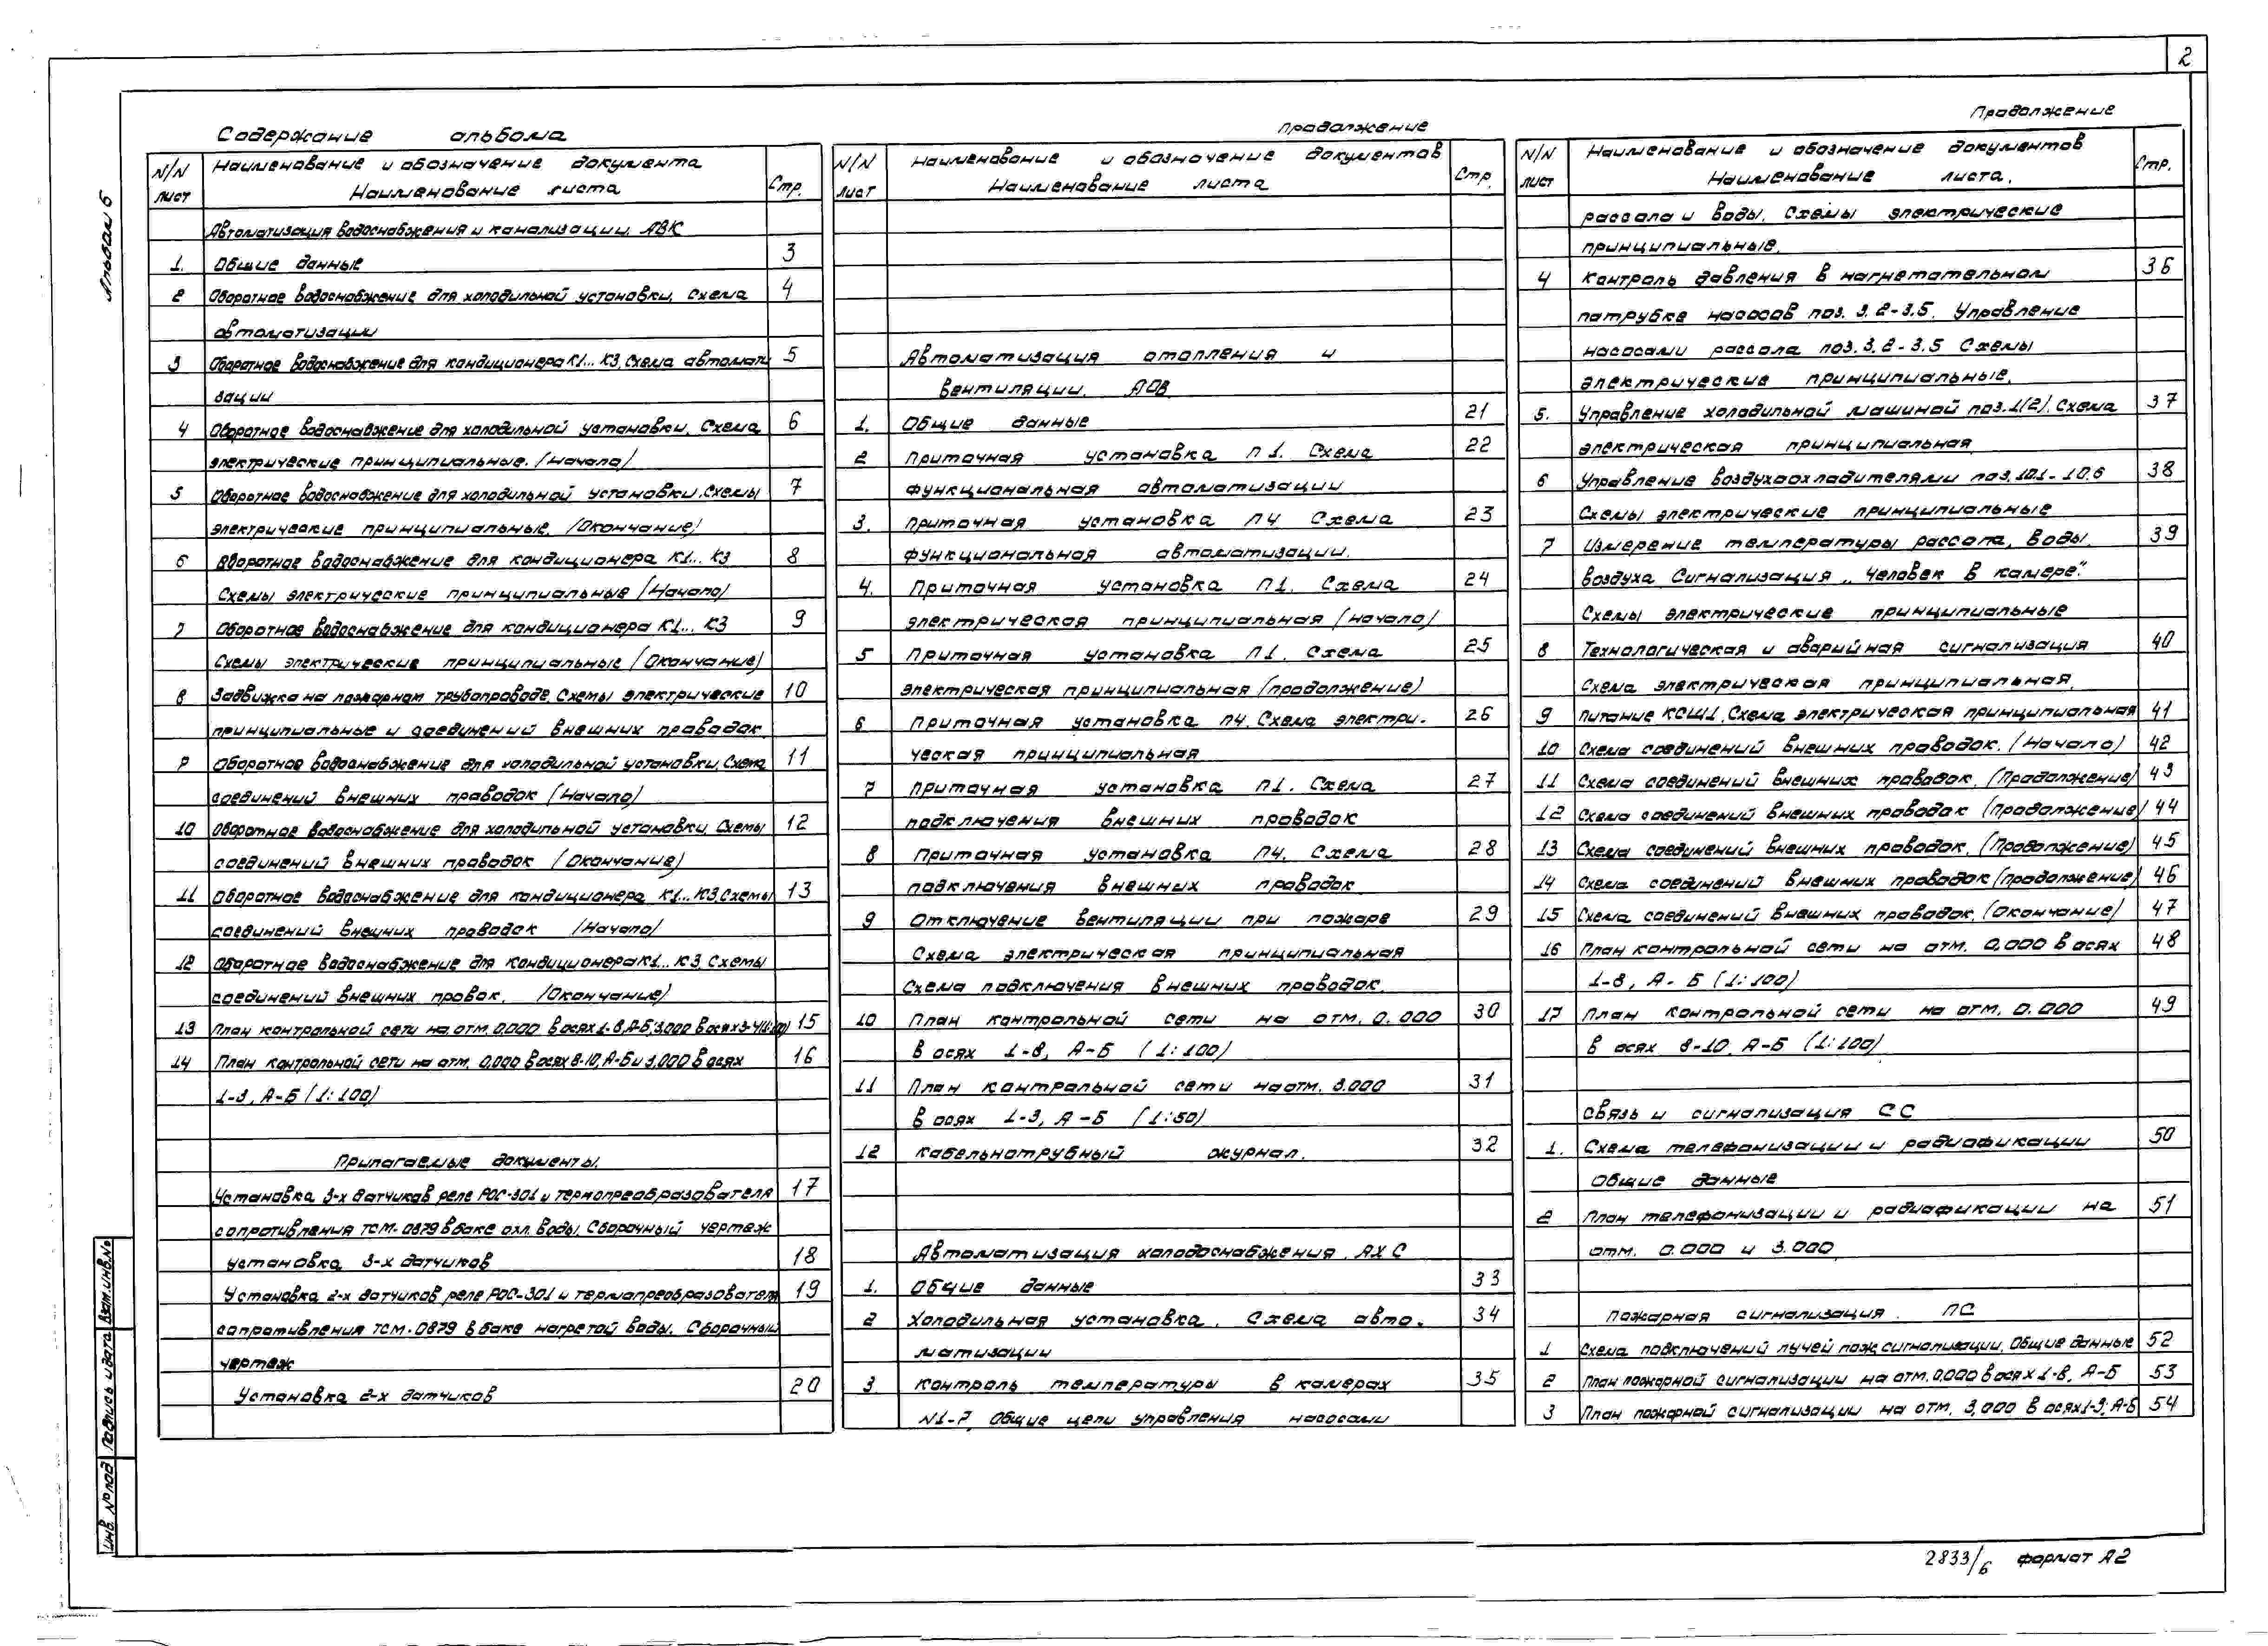 2
Альбом 6
Содержание альбома
N/N лист
Наименование и обозначение документа
Наименование листа
Стр.
Автоматизация водоснабжения и канализации. АВК
1. Общие данные 3
2 Оборотное водоснабжение для холодильной установки. Схема 4
автоматизации
3 Оборотное водоснабжение для кондиционера К1... К3. Схема автомати 5
зации
4 Оборотное водоснабжение для холодильной установки. Схема 6
электрические принципиальные. (Начало)
5 Оборотное водоснабжение для холодильной установки. Схемы 7
электрические принципиальные. (Окончание)
6 Оборотное водоснабжение для кондиционера К1... К3 8
Схемы электрические принципиальные (Начало)
7 Оборотное водоснабжение для кондиционера К1... К3 9
Схемы электрические принципиальные (Окончание)
8 Задвижка на пожарном трубопроводе. Схемы электрические 10
принципиальные и соединений внешних проводок.
9 Оборотное водоснабжение для холодильной установки. Схема 11
соединений внешних проводок (Начало)
10 Оборотное водоснабжение для холодильной установки. Схемы 12
соединений внешних проводок (Окончание)
11 Оборотное водоснабжение для кондиционера К1... К3. Схемы 13
соединений внешних проводок (Начало)
12 Оборотное водоснабжение для кондиционера К1... К3. Схемы
соединений внешних провок. (Окончание)
13 План контрольной сети на отм. 0.000 в осях 1-8, А-Б; 3.000 в осях 3-4 (1:100) 15
14 План контрольной сети на отм. 0.000 в осях 8-10, А-Б и 3.000 в осях 16
1-3, А-Б (1:100)
Прилагаемые документы.
Установка 3-х датчиков реле РОС-301 и термопреобразователя 17
сопротивления ТСМ-0879 в баке охл. воды. Сборочный чертеж
Установка 3-х датчиков 18
Установка 2-х датчиков реле РОС-301 и термопреобразователя 19
сопротивления ТСМ-0879 в баке нагретой воды. Сборочный
чертеж
Установка 2-х датчиков 20
продолжение
N/N лист
Наименование и обозначение документов
Наименование листа
Стр.
Автоматизация отопления и
вентиляции. АОВ
1. Общие данные 21
2 Приточная установка П1. Схема 22
функциональная автоматизации
3. Приточная установка П4 Схема 23
функциональная автоматизации.
4. Приточная установка П1. Схема 24
электрическая принципиальная (начало)
5 Приточная установка П1. Схема 25
электрическая принципиальная (продолжение)
6 Приточная установка П4. Схема электри- 26
ческая принципиальная
7 Приточная установка П1. Схема 27
подключения внешних проводок
8 Приточная установка П4. Схема 28
подключения внешних проводок
9 Отключение вентиляции при пожаре 29
Схема электрическая принципиальная
Схема подключения внешних проводок.
10 План контрольной сети на отм. 0.000 30
в осях 1-8, А-Б (1:100)
11 План контрольной сети на отм. 3.000 31
в осях 1-3, А-Б (1:50)
12 Кабельнотрубный журнал. 32
Автоматизация холодоснабжения. АХС
1. Общие данные 33
2 Холодильная установка. Схема авто- 34
матизации
3 Контроль температуры в камерах 35
N1-7. Общие цепи управления насосами
Продолжение
N/N лист
Наименование и обозначение документов
Наименование листа.
Стр.
рассола и воды. Схемы электрические
принципиальные.
4 Контроль давления в нагнетательном 36
патрубке насосов поз. 3.2-3.5. Управление
насосами рассола поз. 3.2-3.5 Схемы
электрические принципиальные.
5. Управление холодильной машиной поз. 1(2). Схема 37
электрическая принципиальная
6 Управление воздухоохладителями поз. 10.1-10.6 38
Схемы электрические принципиальные
7 Измерение температуры рассола, воды. 39
воздуха Сигнализация „Человек в камере".
Схемы электрические принципиальные
8 Технологическая и аварийная сигнализация 40
Схема электрическая принципиальная.
9 Питание КСШ1. Схема электрическая принципиальная 41
10 Схема соединений внешних проводок. (Начало) 42
11 Схема соединений внешних проводок. (Продолжение) 43
12 Схема соединений внешних проводок (Продолжение) 44
13 Схема соединений внешних проводок. (Продолжение) 45
14 Схема соединений внешних проводок (продолжение) 46
15 Схема соединений внешних проводок. (Окончание) 47
16 План контрольной сети на отм. 0.000 в осях 48
1-8, А-Б (1:100)
17 План контрольной сети на отм. 0.000 49
в осях 8-10, А-Б (1:100)
Связь и сигнализация СС
1. Схема телефонизации и радиофикации 50
Общие данные
2 План телефонизации и радиофикации на 51
отм. 0.000 и 3.000
Пожарная сигнализация. ПС
1 Схема подключений лучей пож. сигнализации. Общие данные 52
2 План пожарной сигнализации на отм. 0.000 в осях 1-8, А-Б 53
3 План пожарной сигнализации на отм. 3.000 в осях 1-3; А-Б 54
Инв. № подл Подпись и дата Взам. инв. №
2833/6 формат А2